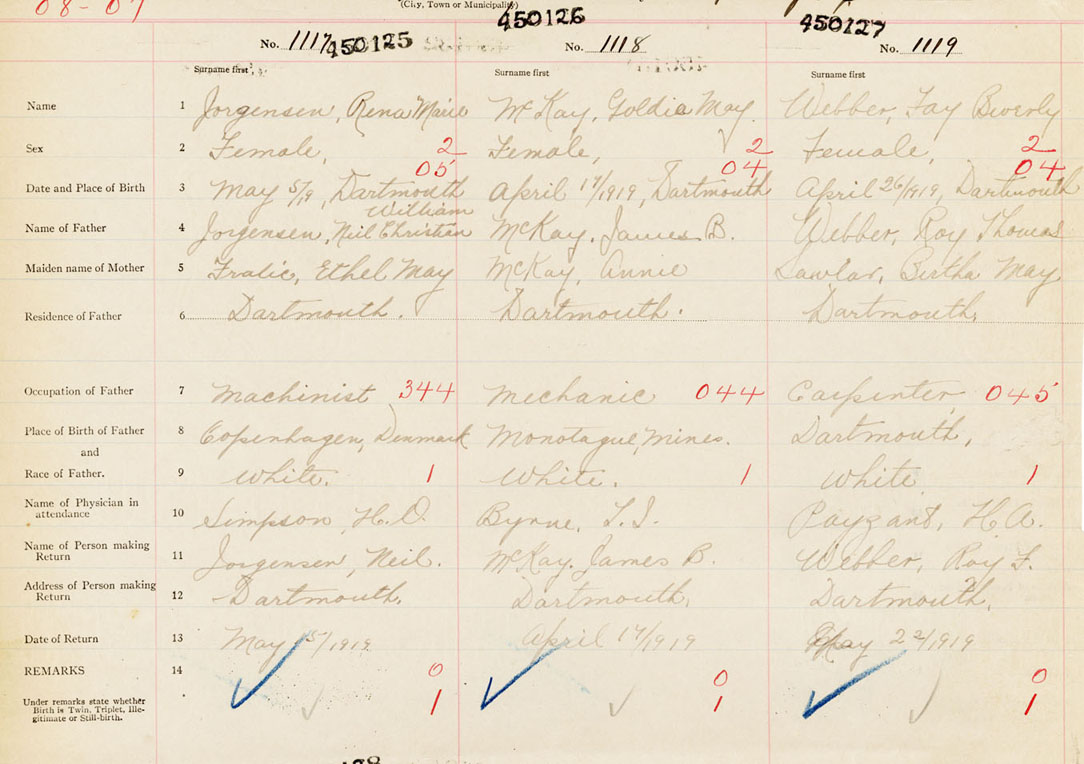 08-07
(City, Town or Municipality)
No. 1117 450125
450126
No. 1118
450127
No. 1119
Surname first Surname first Surname first
Name 1 Jorgensen, Rena Marie McKay, Goldie May. Webber, Fay Beverly
Sex 2 Female, 2 Female, 2 Female, 2
05 04 04
Date and Place of Birth 3 May 5/19, Dartmouth April 17/1919, Dartmouth April 26/1919, Dartmouth
William
Name of Father 4 Jorgensen, Neil Christian McKay, James B. Webber, Roy Thomas
Maiden name of Mother 5 Fralic, Ethel May McKay, Annie Lawlor, Bertha May
Residence of Father 6 Dartmouth. Dartmouth. Dartmouth.
Occupation of Father 7 Machinist 344 Mechanic 044 Carpenter 045
Place of Birth of Father 8 Copenhagen, Denmark Monotague Mines. Dartmouth,
and
Race of Father. 9 White. 1 White. 1 White 1
Name of Physician in
attendance 10 Simpson, H.O. Byrne, T.I. Payzant, H.A.
Name of Person making
Return 11 Jorgensen, Neil. McKay, James B. Webber, Roy T.
Address of Person making
Return 12 Dartmouth, Dartmouth, Dartmouth,
Date of Return 13 May 15/1919 April 17/1919 May 22/1919
REMARKS 14 0 0 0
Under remarks state whether
Birth is Twin, Triplet, Ille-
gitimate or Still-birth. 1 1 1